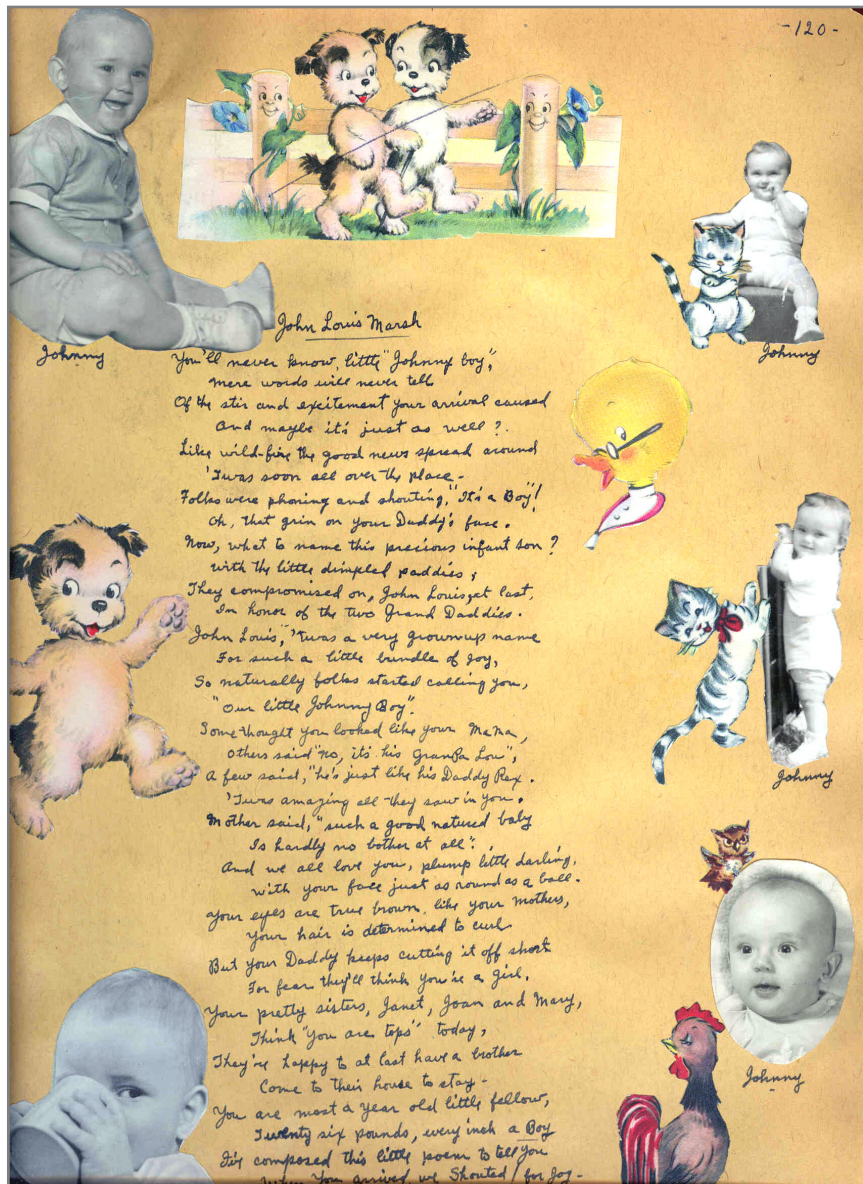 -120-
John Louis Marsh
Johnny
Johnny
You'll never know, little "Johnny boy",
mere words will never tell
Of the stir and excitement your arrival caused
And maybe it's just as well?
Like wild-fire the good news spread around
'Twas soon all over the place -
Folks were phoning and shouting, "It's a Boy"!
Oh, that grin on your Daddy's face.
Now, what to name this precious infant son?
with the little dimpled paddies;
They compromised on, John Louis, at last,
In honor of the two Grand Daddies.
John Louis," 'twas a very grownup name
For such a little bundle of joy,
So naturally folks started calling you,
"Our little Johnny Boy".
Some thought you looked like your MaMa,
others said "no, it's his GranPa Lou",
A few said, "he's just like his Daddy Rex.
'Twas amazing all they saw in you.
Johnny
Mother said, "such a good natured baby
Is hardly no bother at all".
And we all love you, plump little darling,
with your face just as round as a ball.
your eyes are true brown, like your mothers,
your hair is determined to curl
But your Daddy keeps cutting it off short
For fear they'll think you're a girl.
Your pretty sisters, Janet, Joan and Mary,
Think "you are tops" today,
They're happy to at last have a brother
Come to their house to stay -
Johnny
You are most a year old little fellow,
Twenty six pounds, every inch a Boy
I've composed this little poem to tell you
When You arrived we Shouted for Joy -